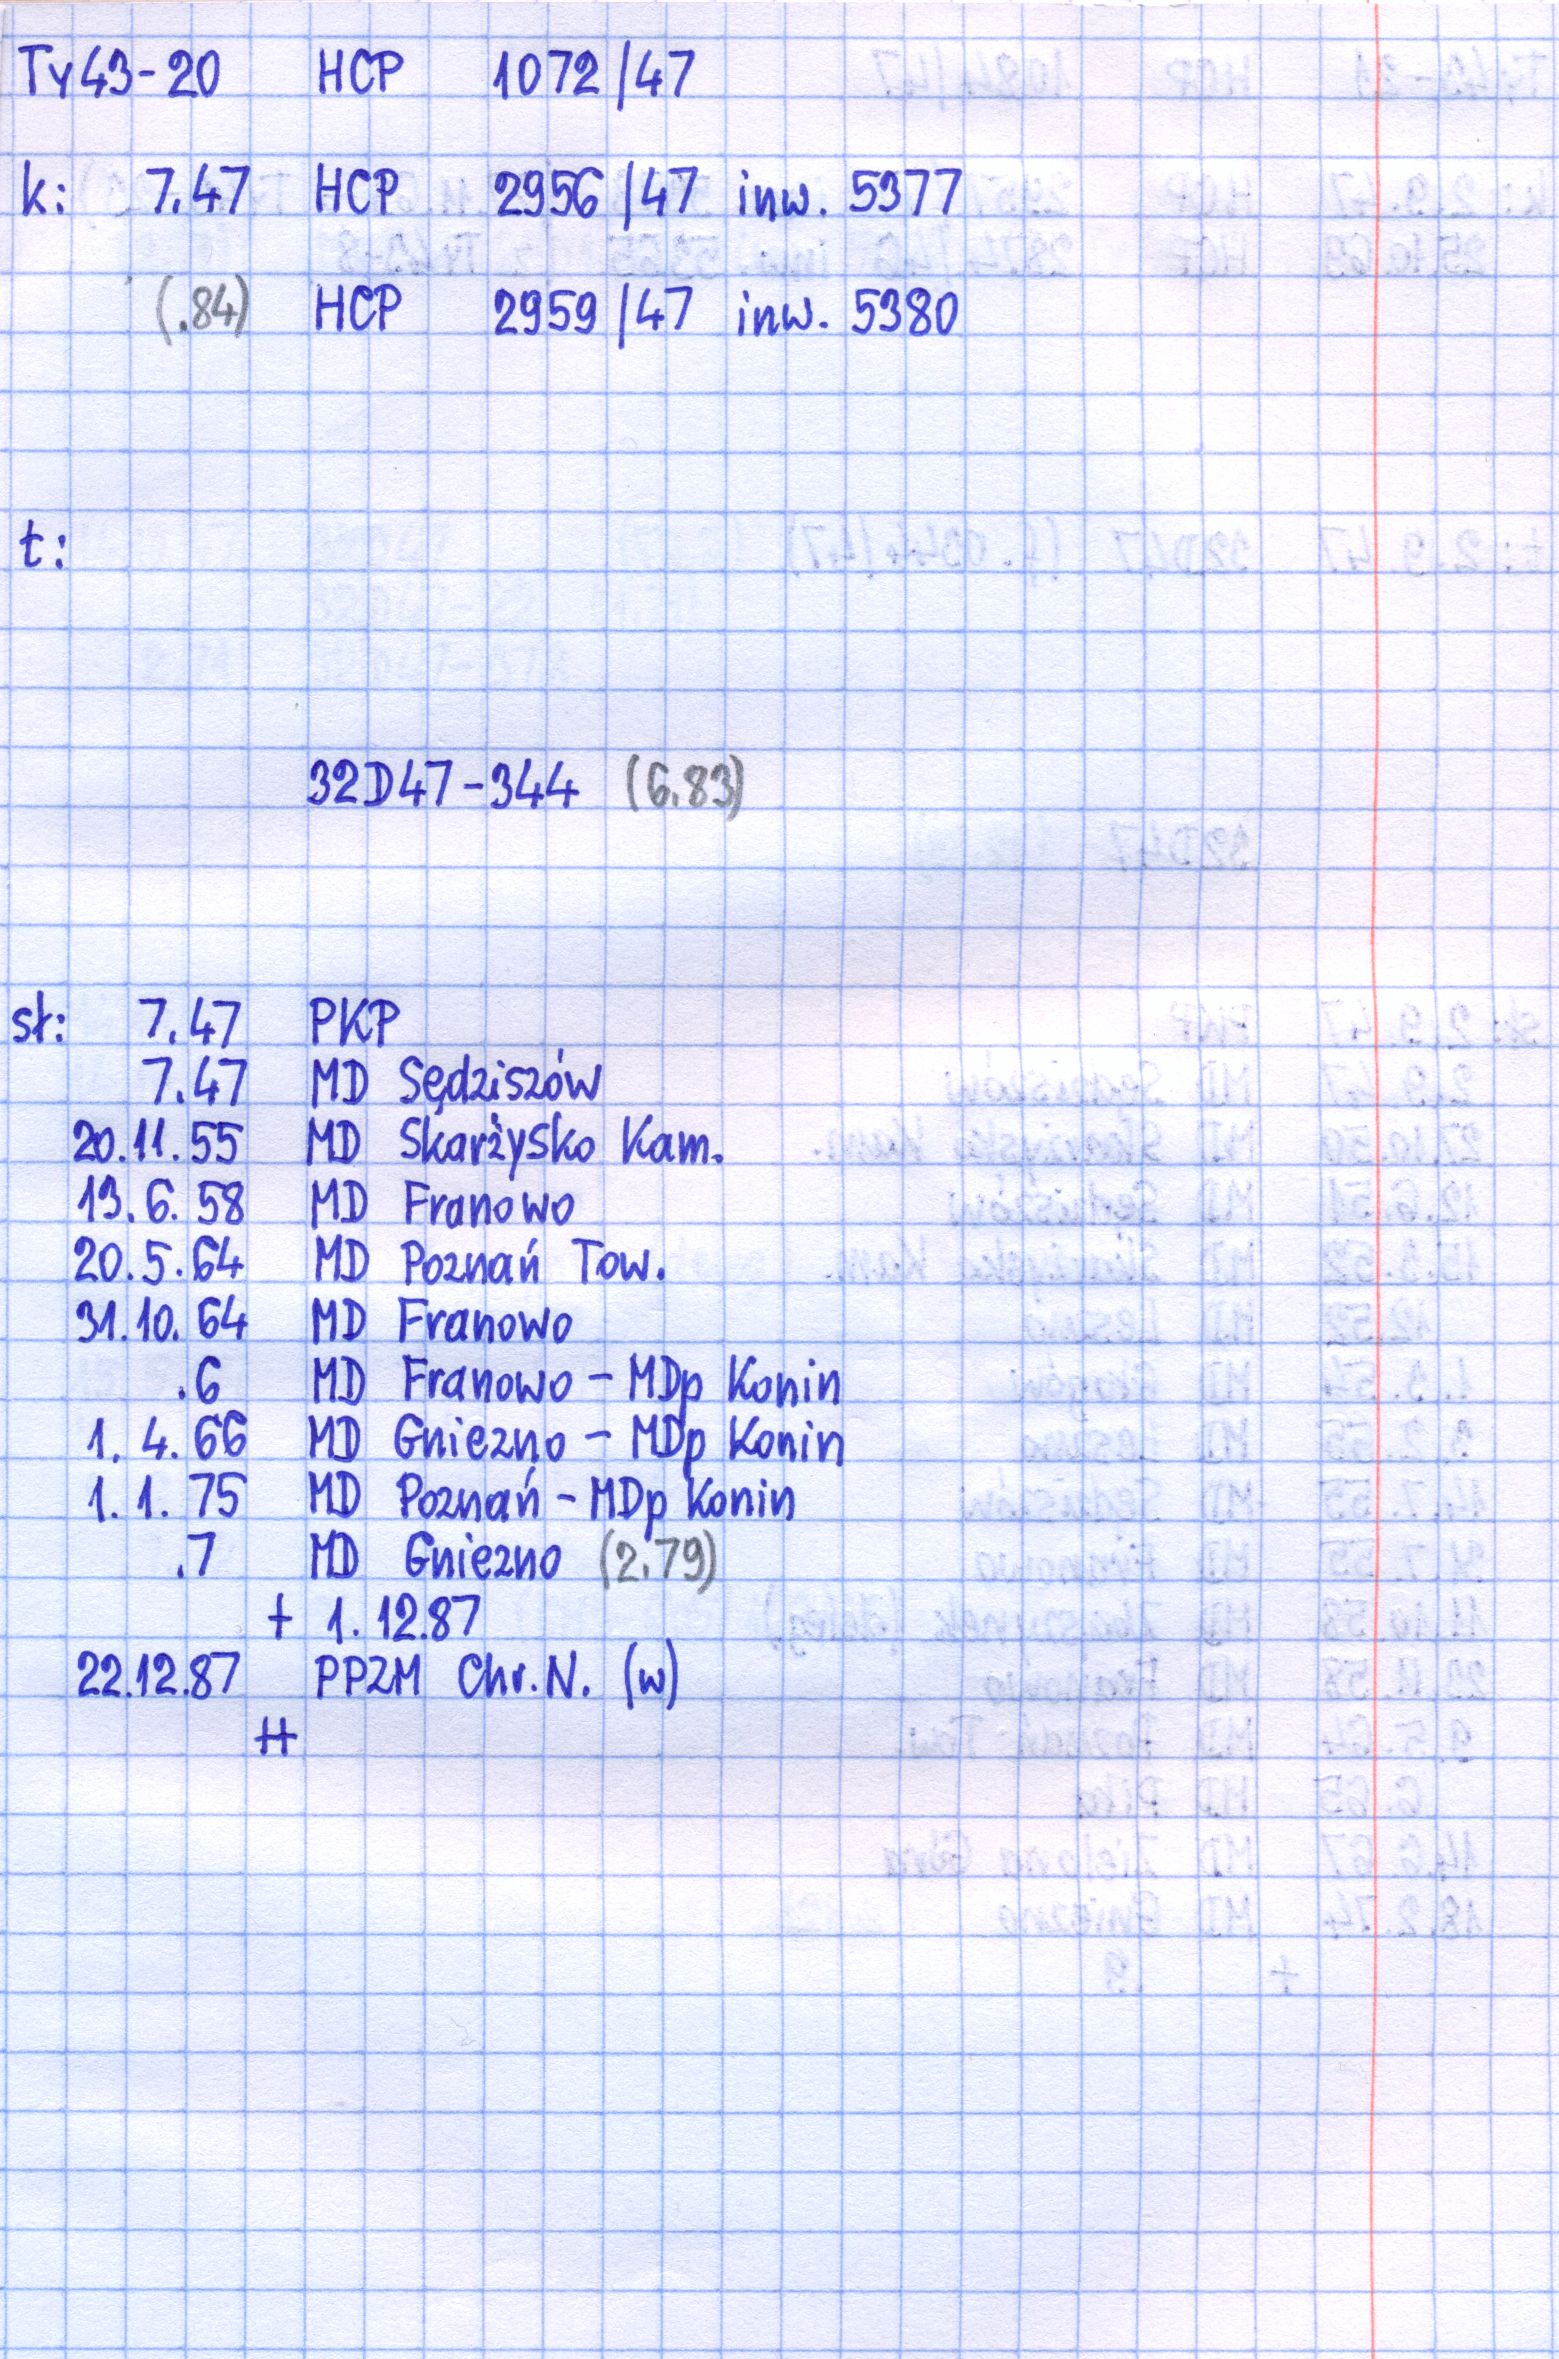 Ty43-20 HCP 1072/47
k: 7.47 HCP 2956/47 inw. 5377
(.84) HCP 2959/47 inw. 5380
t:
32D47-344 (6.83)
sł: 7.47 PKP
7.47 MD Sędziszów
20.11.55 MD Skarżysko Kam.
13.6.58 MD Franowo
20.5.64 MD Poznań Tow.
31.10.64 MD Franowo
.6 MD Franowo - MDp Konin
1.4.66 MD Gniezno - MDp Konin
1.1.75 MD Poznań - MDp Konin
.7 MD Gniezno (2.79)
+ 1.12.87
22.12.87 PPZM Chr.N. (w)
++